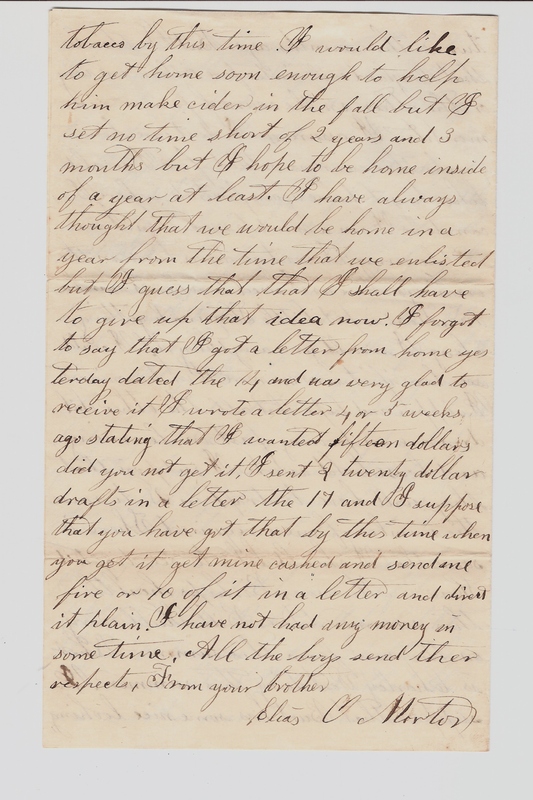 tobacco by this time. I would like
to get home soon enough to help
him make cider in the fall but I
set no time short of 2 years and 3
months but I hope to be home inside
of a year at least. I have always
thought that we would be home in a
year from the time that we enlisted
but I guess that that I shall have
to give up that idea now. I forgot
to say that I got a letter from home yes
terday dated the 4 and was very glad to
receive it I wrote a letter 4 or 5 weeks
ago stating that I wanted fifteen dollars
did you not get it, I sent 2 twenty dollar
drafts in a letter the 17 and I suppose
that you have got that by this time when
you get it get mine cashed and send me
five or 10 of it in a letter and direct
it plain. I have not had any money in
some time, All the boys send ther
respects, From your brother
Elias O Morton